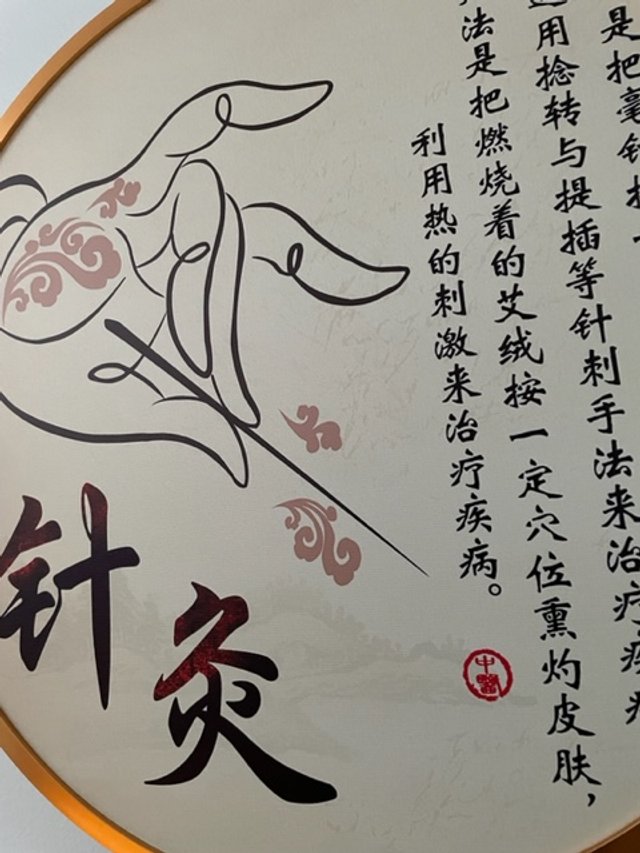 是把毫针
用捻转与提插等针刺手法来治疗疾
法是把燃烧着的艾绒按一定穴位熏灼皮肤，
利用热的刺激来治疗疾病。
中醫
针灸